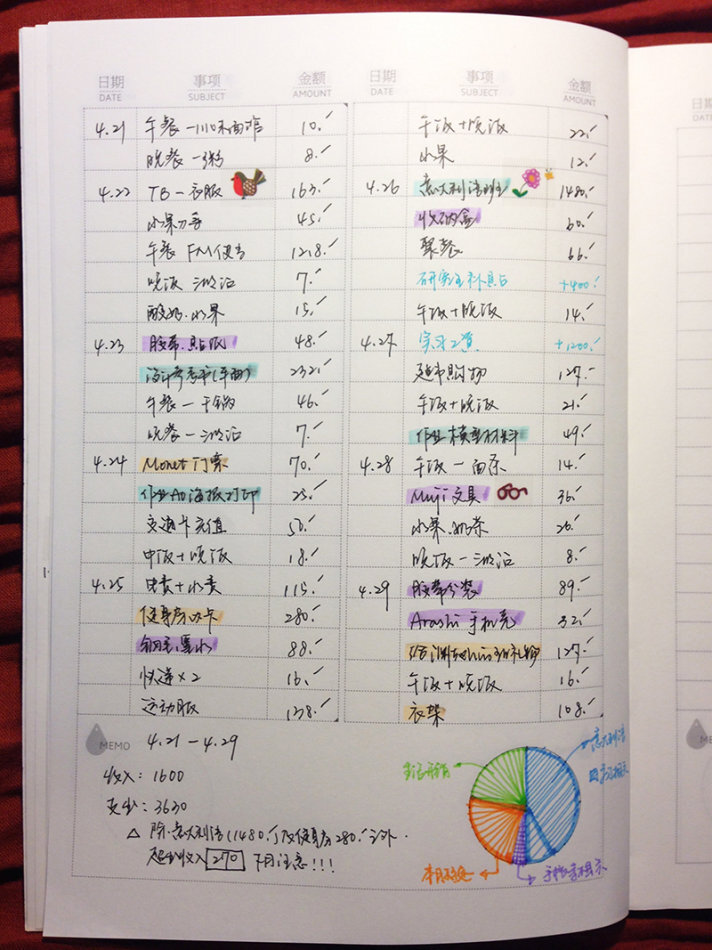 日期 事项 金额
DATE SUBJECT AMOUNT
4.21 午餐 — 110味面馆 10.
晚餐 — 粥 8.
4.22 TB — 衣服 163.
水果刀 45.
午餐 FM便当 12.8.
晚饭 7.
酸奶.水果 15.
4.23 胶带.贴纸 48.
设计参考书(平面) 232.
午餐 — 干锅 46.
晚餐 7.
4.24 Monet 门票 70.
作业A0海报打印 25.
交通卡充值 50.
中饭+晚饭 18.
4.25 电费+水费 115.
健身房办卡 280.
钢笔墨水 88.
快递×2 16.
运动服 138.
日期 事项 金额
DATE SUBJECT AMOUNT
午饭+晚饭 22.
水果 12.
4.26 意大利语班 1480.
收纳盒 60.
聚餐 66.
研究生补贴 +400.
午饭+晚饭 14.
4.27 实习工资 +1200.
超市购物 127.
午饭+晚饭 21.
作业模型材料 49.
4.28 午饭 — 面条 14.
Muji 文具 36.
水果.奶茶 26.
晚饭 8.
4.29 胶带分装 89.
Arashi 手机壳 32.
礼物 127.
午饭+晚饭 16.
衣架 108.
MEMO 4.21 — 4.29
收入: 1600
支出: 3630
△ 除意大利语(1480.)及健身房280.之外.
超出收入 270 下月注意!!!
意大利语
生活开销
日期
DATE
MEMO